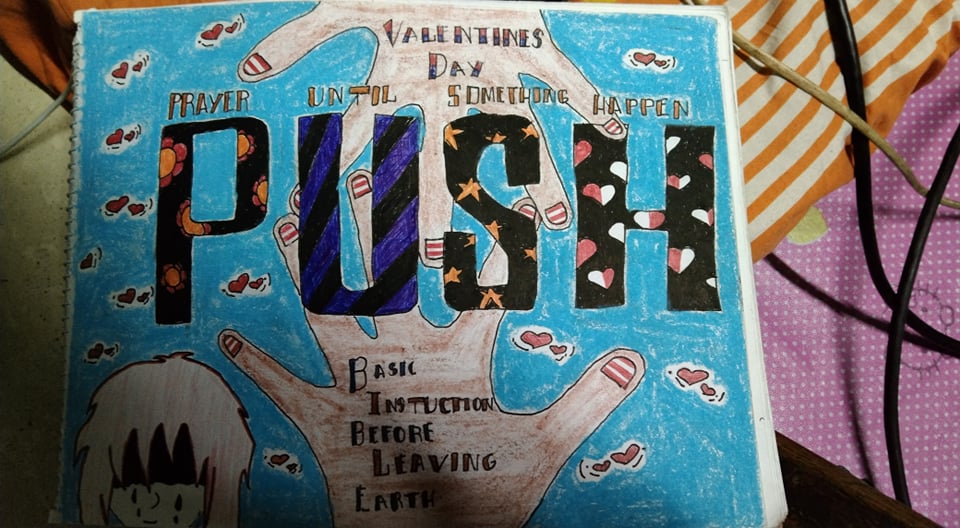 VALENTINES
DAY
PRAYER UNTIL SOMETHING HAPPEN
PUSH
BASIC
INSTUCTION
BEFORE
LEAVING
EARTH